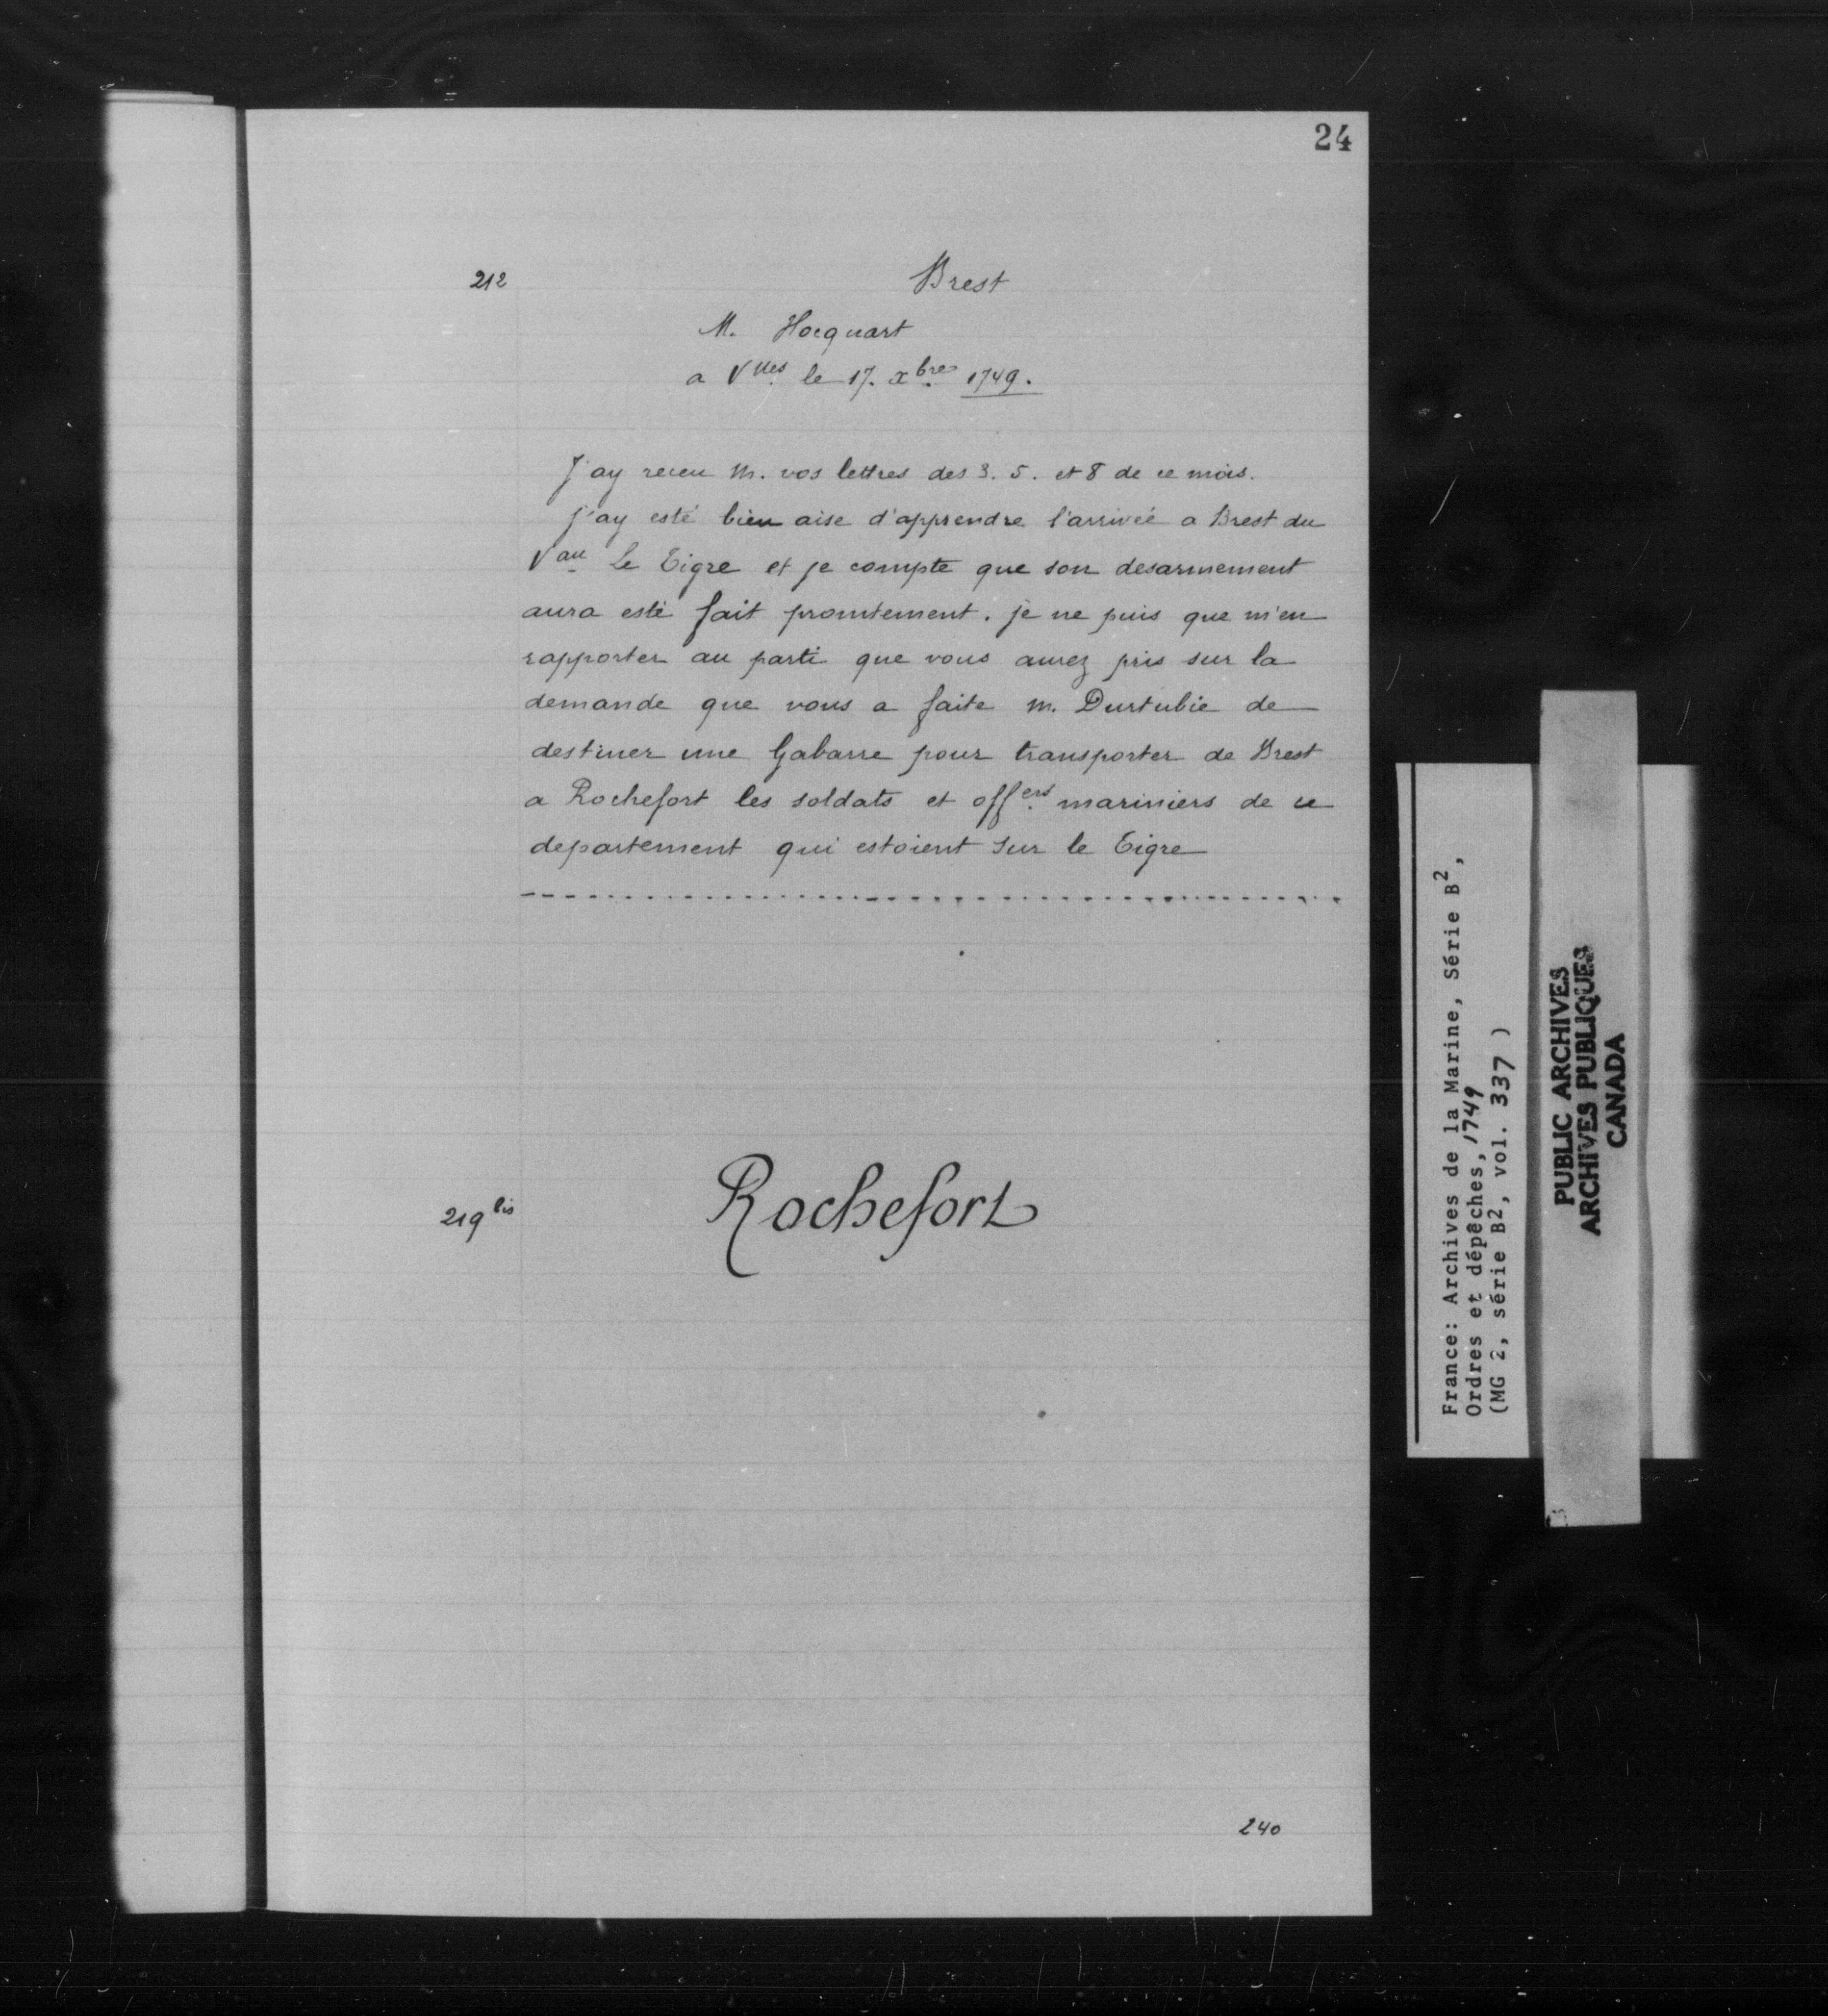 24
212
Brest
M. Hocquart
a Vlles le 17. xbre 1749.
J'ay receu M. vos lettres des 3. 5. et 8 de ce mois.
j'ay esté bien aise d'apprendre l'arrivée a Brest du
Vau Le Tigre et je compte que son desarmement
aura esté fait promtement. je ne puis que m'en
rapporter au parti que vous aurez pris sur la
demande que vous a faite m. Durtubie de
destiner une Gabarre pour transporter de Brest
a Rochefort les soldats et offers mariniers de ce
departement qui estoient sur le Tigre
219 bis
Rochefort
240
France: Archives de la Marine, Série B2,
Ordres et dépêches, 1749
(MG 2, série B2, vol. 337 )
PUBLIC ARCHIVES
ARCHIVES PUBLIQUES
CANADA